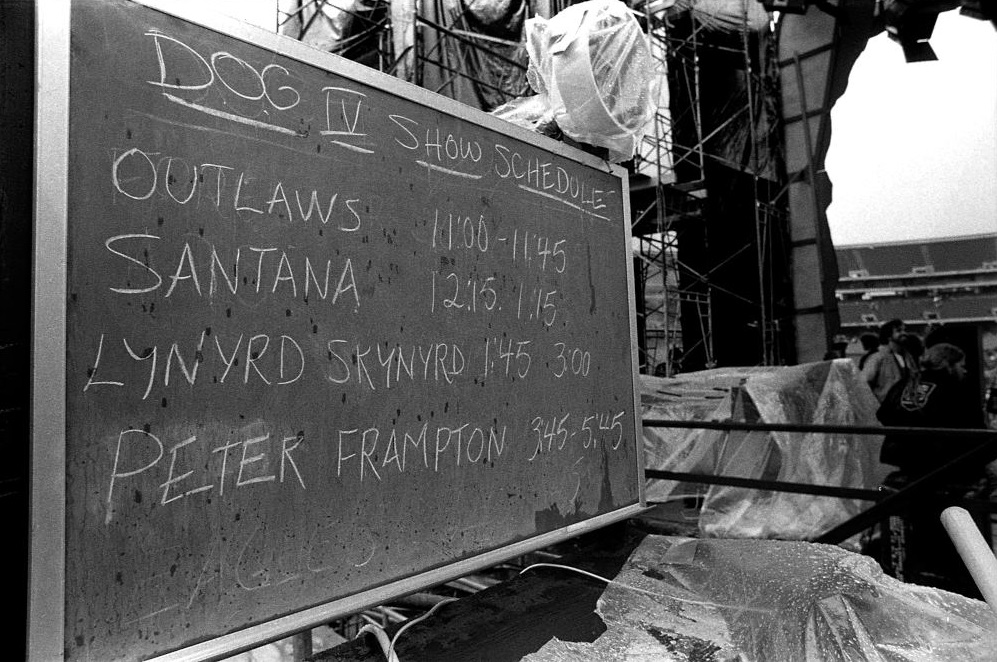 DOG IV SHOW SCHEDULE
OUTLAWS 11:00 - 11:45
SANTANA 12:15. 1:15
LYNYRD SKYNYRD 1:45 3:00
PETER FRAMPTON 3:45 - 5:45